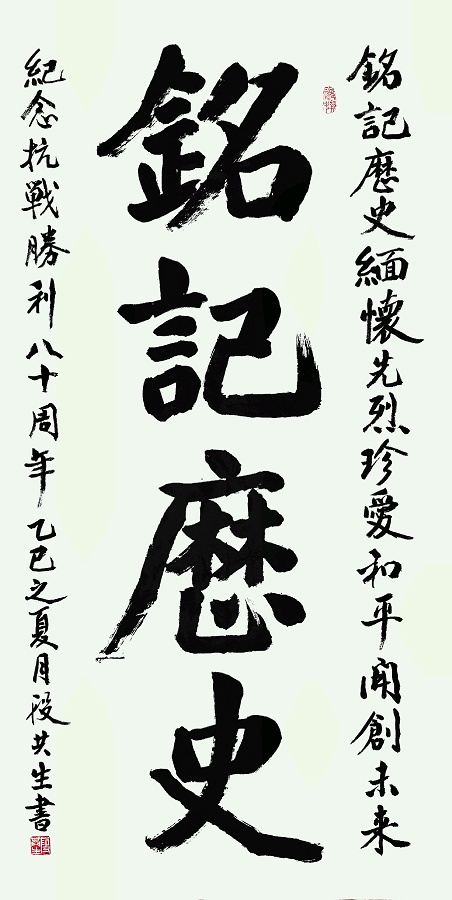 銘記歷史緬懷先烈珍愛和平開創未来
銘記歷史
紀念抗戰勝利八十周年乙巳之夏月段共生書